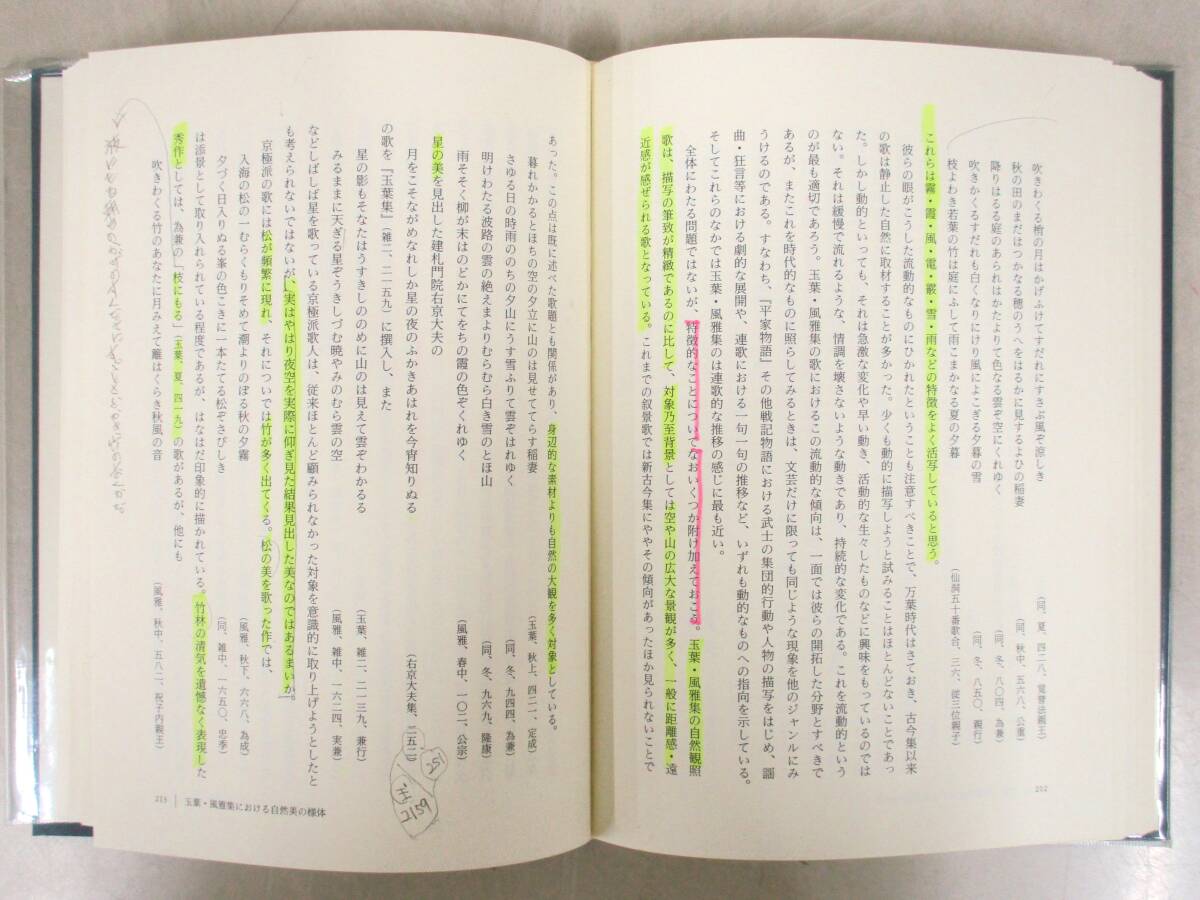 吹きわくる檜の月はかげふけてすだれにすさぶ風ぞ涼しき
（同、夏、四二八、覚誉法親王）
秋の田のまだはつかなる穂のうへをはるかに見するよひの稲妻
（同、秋中、五六八、公重）
降りはるる庭のあられはかたよりて色なる雲ぞ空にくれゆく
（同、冬、八〇四、為兼）
吹きかくるすだれも白くなりにけり風によこぎる夕暮の雪
（同、冬、八五〇、親行）
枝よわき若葉の竹は庭にふして雨こまかなる夏の夕暮
（仙洞五十番歌合、三六、従三位親子）
これらは霧・霞・風・電・霰・雪・雨などの特徴をよく活写していると思う。
彼らの眼がこうした流動的なものにひかれたということも注意すべきことで、万葉時代はさておき、古今集以来
の歌は静止した自然に取材することが多かった。少くも動的に描写しようと試みることはほとんどないことであっ
た。しかし動的といっても、それは急激な変化や早い動き、活動的な生々したものなどに興味をもっているのでは
ない。それは緩慢で流れるような、情調を壊さないような動きであり、持続的な変化である。これを流動的という
のが最も適切であろう。玉葉・風雅集の歌におけるこの流動的な傾向は、一面では彼らの開拓した分野とすべきで
あるが、またこれを時代的なものに照らしてみるときは、文芸だけに限っても同じような現象を他のジャンルにみ
うけるのである。すなわち、『平家物語』その他戦記物語における武士の集団的行動や人物の描写をはじめ、謡
曲・狂言等における劇的な展開や、連歌における一句一句の推移など、いずれも動的なものへの指向を示している。
そしてこれらのなかでは玉葉・風雅集のは連歌的な推移の感じに最も近い。
全体にわたる問題ではないが、特徴的なことについてなおいくつか附け加えておこる。玉葉・風雅集の自然観照
歌は、描写の筆致が精緻であるのに比して、対象乃至背景としては空や山の広大な景観が多く、一般に距離感・遠
近感が感ぜられる歌となっている。これまでの叙景歌では新古今集にややその傾向があったほか見られないことで
212
あった。この点は既に述べた歌題とも関係があり、身辺的な素材よりも自然の大観を多く対象としている。
暮れかかるとほちの空の夕立に山のは見せててらす稲妻
（玉葉、秋上、四二一、定成）
さゆる日の時雨ののちの夕山にうす雪ふりて雲ぞはれゆく
（同、冬、九四四、為兼）
明けわたる波路の雲の絶えまよりむらむら白き雪のとほ山
（同、冬、九六九、隆康）
雨そそく柳が末はのどかにてをちの霞の色ぞくれゆく
（風雅、春中、一〇二、公宗）
星の美を見出した建札門院右京大夫の
月をこそながめなれしか星の夜のふかきあはれを今宵知りぬる
（右京大夫集、二五二）
251
玉
2159
の歌を『玉葉集』（雑二、二一五九）に撰入し、また
星の影もそなたはうすきしののめに山のは見えて雲ぞわかるる
（玉葉、雑二、二一三九、兼行）
みるままに天ぎる星ぞうきしづむ暁やみのむら雲の空
（風雅、雑中、一六二四、実兼）
などしばしば星を歌っている京極派歌人は、従来ほとんど顧みられなかった対象を意識的に取り上げようとしたと
も考えられないではないが、実はやはり夜空を実際に仰ぎ見た結果見出した美なのではあるまいか。
京極派の歌には松が頻繁に現れ、それについでは竹が多く出てくる。松の美を歌った作では、
入海の松の一むらくもりそめて潮よりのぼる秋の夕霧
（風雅、秋下、六六八、為成）
夕づく日入りぬる峯の色こきに一本たてる松ぞさびしき
（同、雑中、一六五〇、忠季）
は添景として取り入れられている程度であるが、はなはだ印象的に描かれている。竹林の清気を遺憾なく表現した
秀作としては、為兼の「枝にもる」（玉葉、夏、四一九）の歌があるが、他にも
吹きわくる竹のあなたに月みえて籬はくらき秋風の音
（風雅、秋中、五八二、祝子内親王）
213 玉葉・風雅集における自然美の様体